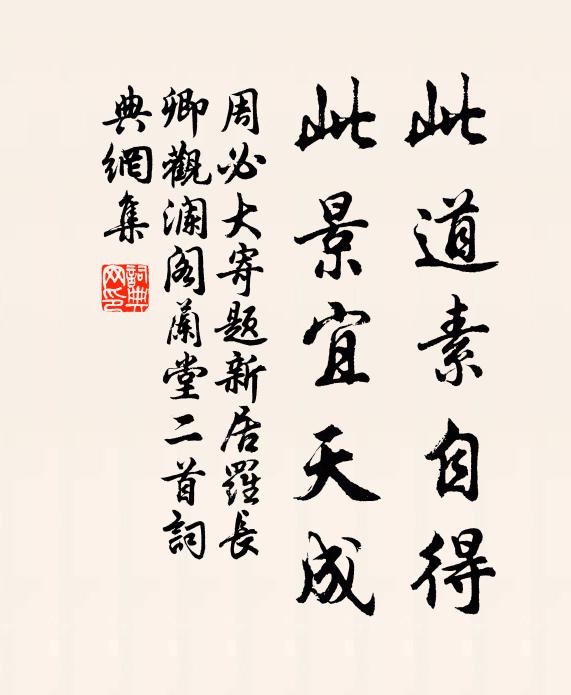 此道素自得
此景宜天成
周必大寄题新居羅長
卿觀澜阁蘭堂二首詞
典網集
詞典网印